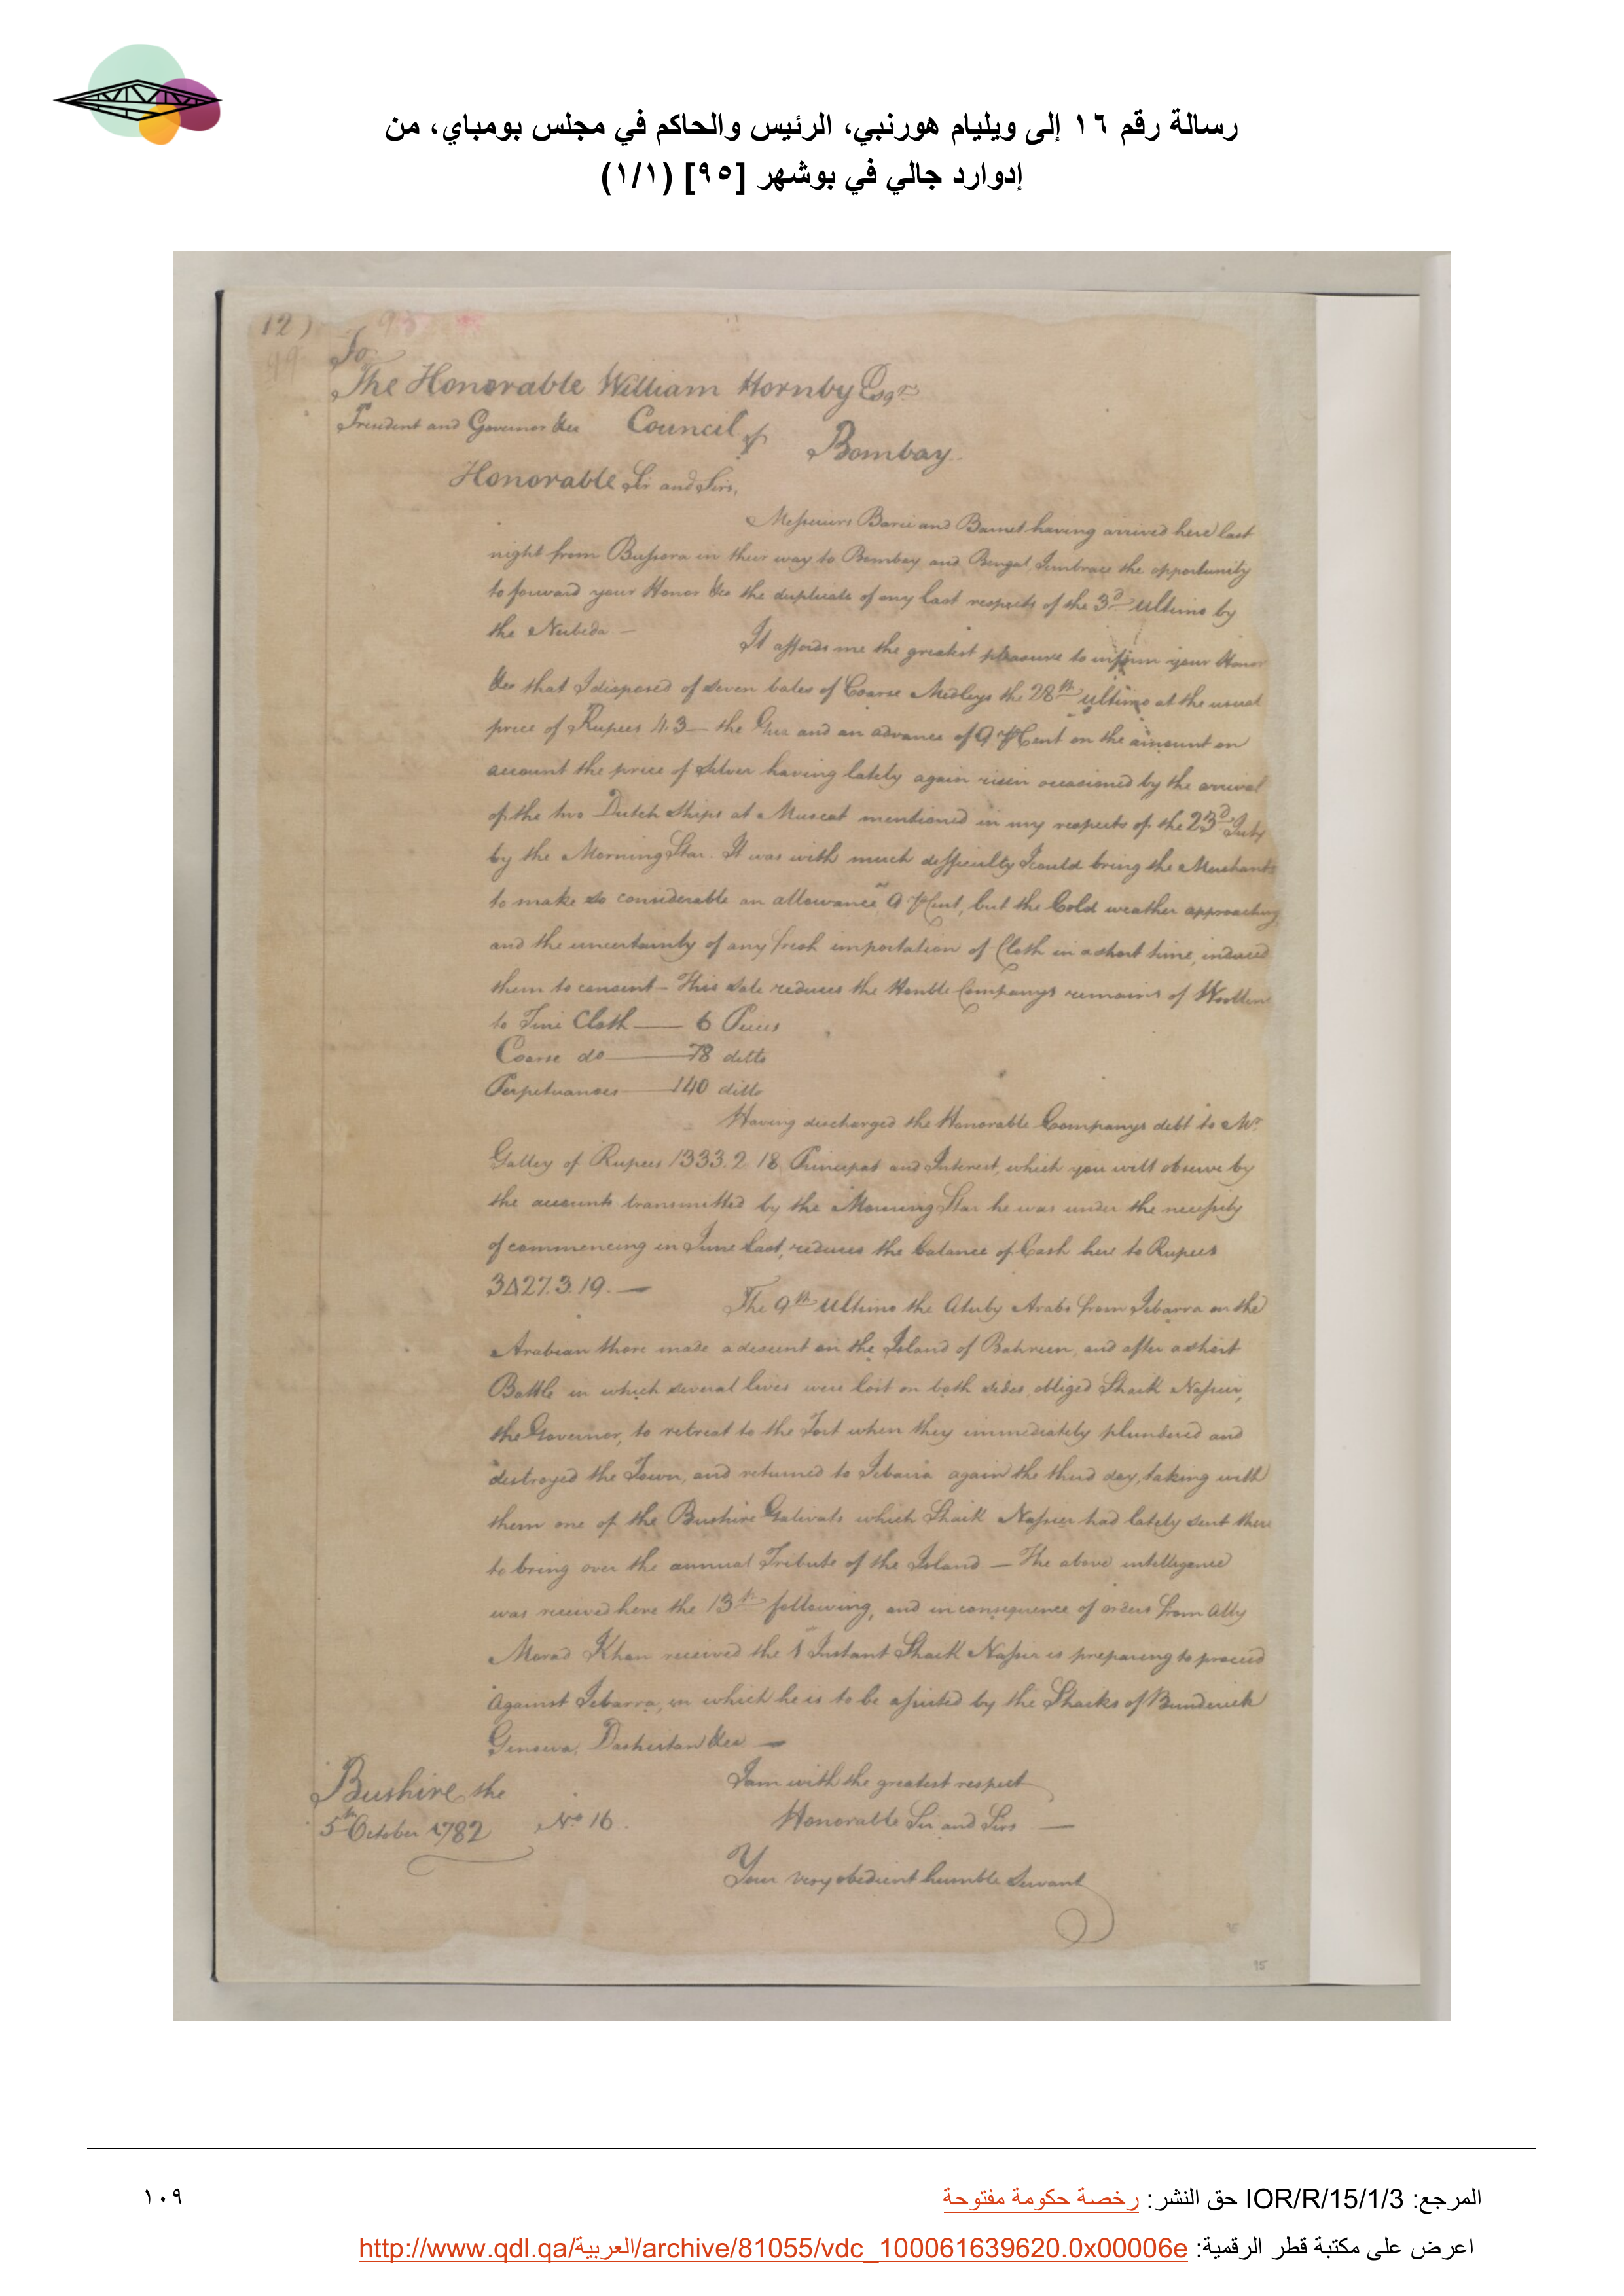 رسالة رقم ١٦ إلى ويليام هورنبي، الرئيس والحاكم في مجلس بومباي، من
إدوارد جالي في بوشهر [٩٥] (١/١)
12)
To
The Honorable William Hornby Esqr.
President and Governor &ca Council of Bombay
Honorable Sir and Sirs,
Messieurs Barié and Barnet having arrived here last
night from Bussora in their way to Bombay and Bengal, I embrace the opportunity
to forward your Honor &ca the duplicate of my last respects of the 3d ultimo by
the
It affords me the greatest pleasure to inform your Honor
&ca that I disposed of seven bales of Coarse Medleys the 28th ultimo at the usual
price of Rupees 4.3— the Guz and an advance of 9 P Cent on the amount on
account the price of Silver having lately again risen occasioned by the arrival
of the two Dutch Ships at Muscat mentioned in my respects of the 23d July
by the Morning Star. It was with much difficulty I could bring the Merchants
to make so considerable an allowance 9 P Cent, but the Cold weather approaching
and the uncertainty of any fresh importation of Cloth in a short time, induced
them to consent— This Sale reduces the Honble Companys remains of Woollens
to Fine Cloth —— 6 Pieces
Coarse do —— 78 ditto
Perpetuanoes —— 140 ditto
Having discharged the Honorable Companys debt to Mr.
Galley of Rupees 1333.2.18 Principal and Interest, which you will observe by
the accounts transmitted by the Morning Star he was under the necessity
of commencing in June last, reduces the balance of Cash here to Rupees
27.3.19.—
The 9th Ultimo the Atuby Arabs from Zebarra on the
Arabian Shore made a descent on the Island of Bahreen, and after a short
Battle in which several lives were lost on both sides, obliged Shaik Nassier,
the Governor, to retreat to the Fort when they immediately plundered and
destroyed the Town, and returned to Zebarra again the third day, taking with
them one of the Bushire Galivats which Shaik Nassier had lately sent there
to bring over the annual Tribute of the Island — The above intelligence
was received here the 13th following, and in consequence of orders from Ally
Morad Khan received the 1 Instant Shaik Nassier is preparing to proceed
Against Zebarra, in which he is to be assisted by the Shaiks of Bunderick
Genowa, Dashistan &ca —
Bushire the
5th October 1782
No. 16.
I am with the greatest respect
Honorable Sir and Sirs —
Your very obedient humble Servant
95
المرجع: IOR/R/15/1/3 حق النشر: رخصة حكومة مفتوحة
١٠٩
اعرض على مكتبة قطر الرقمية: http://www.qdl.qa/العربية/archive/81055/vdc_100061639620.0x00006e